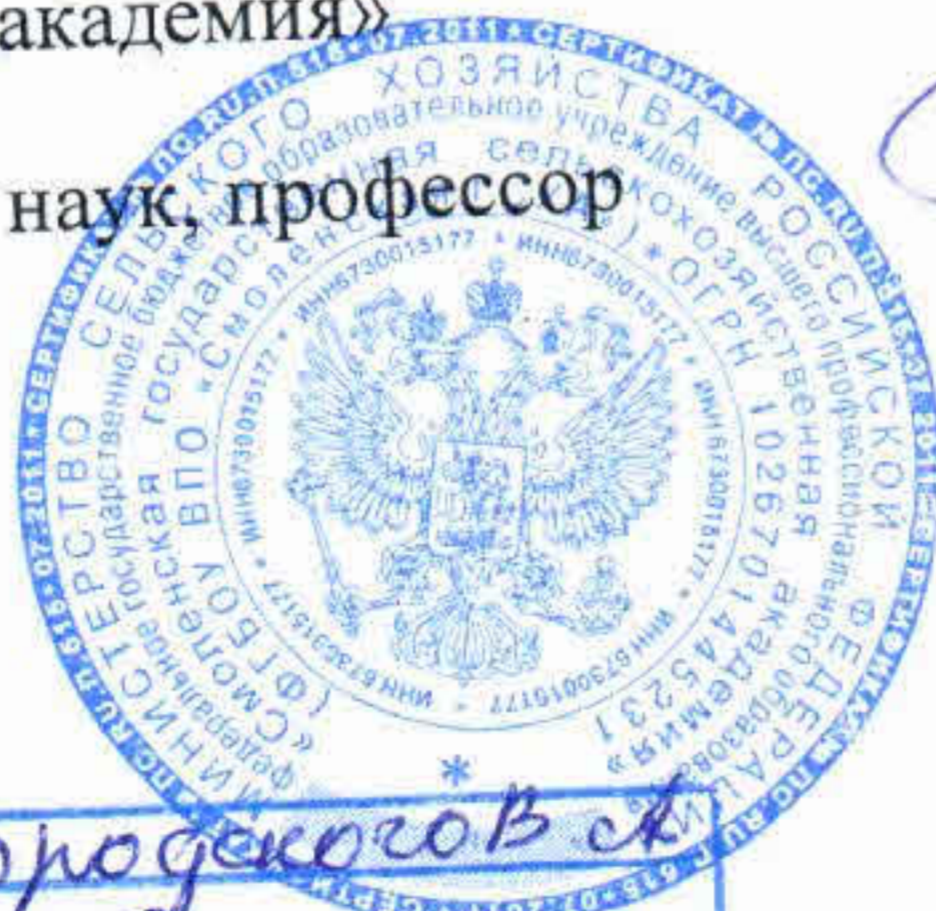 академия»
наук, профессор
СЕРТИФИКАТ № ПС.RU.П.616•07.2011
МИНИСТЕРСТВО СЕЛЬСКОГО ХОЗЯЙСТВА РОССИЙСКОЙ ФЕДЕРАЦИИ
федеральное государственное бюджетное образовательное учреждение высшего профессионального образования
«Смоленская государственная сельскохозяйственная академия»
(ФГБОУ ВПО «Смоленская * ОГРН 1026701445231
ИНН6730015177 * ИНН6730015177 * ИНН6730015177 * ИНН6730015177 * ИНН6730015177
*